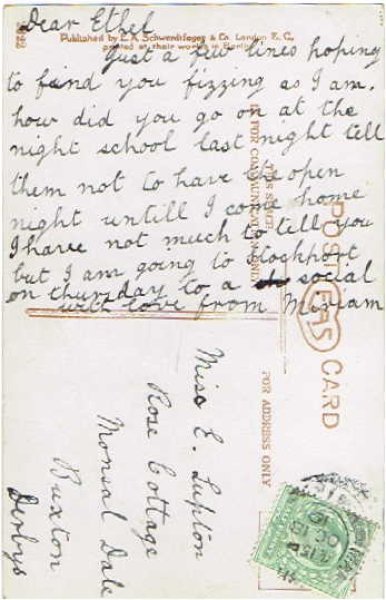 Dear Ethel
Published by E. A. Schwerdtfeger & Co. London E. C.,
printed at their works in Berlin
Just a few lines hoping
to find you fizzing as I am.
how did you go on at the
night school last night tell
them not to have the open
night untill I come home
I have not much to tell you
but I am going to stockport
on thursday to a social
with love from Miriam
FOR COMMUNICATION
POST CARD
EAS
FOR ADDRESS ONLY
Miss E. Lupton
Rose Cottage
Monsal Dale
Buxton
Derbys